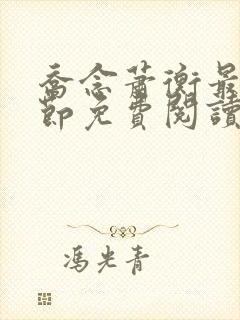 喬念蕭衡最
節免費閱讀
馮光青